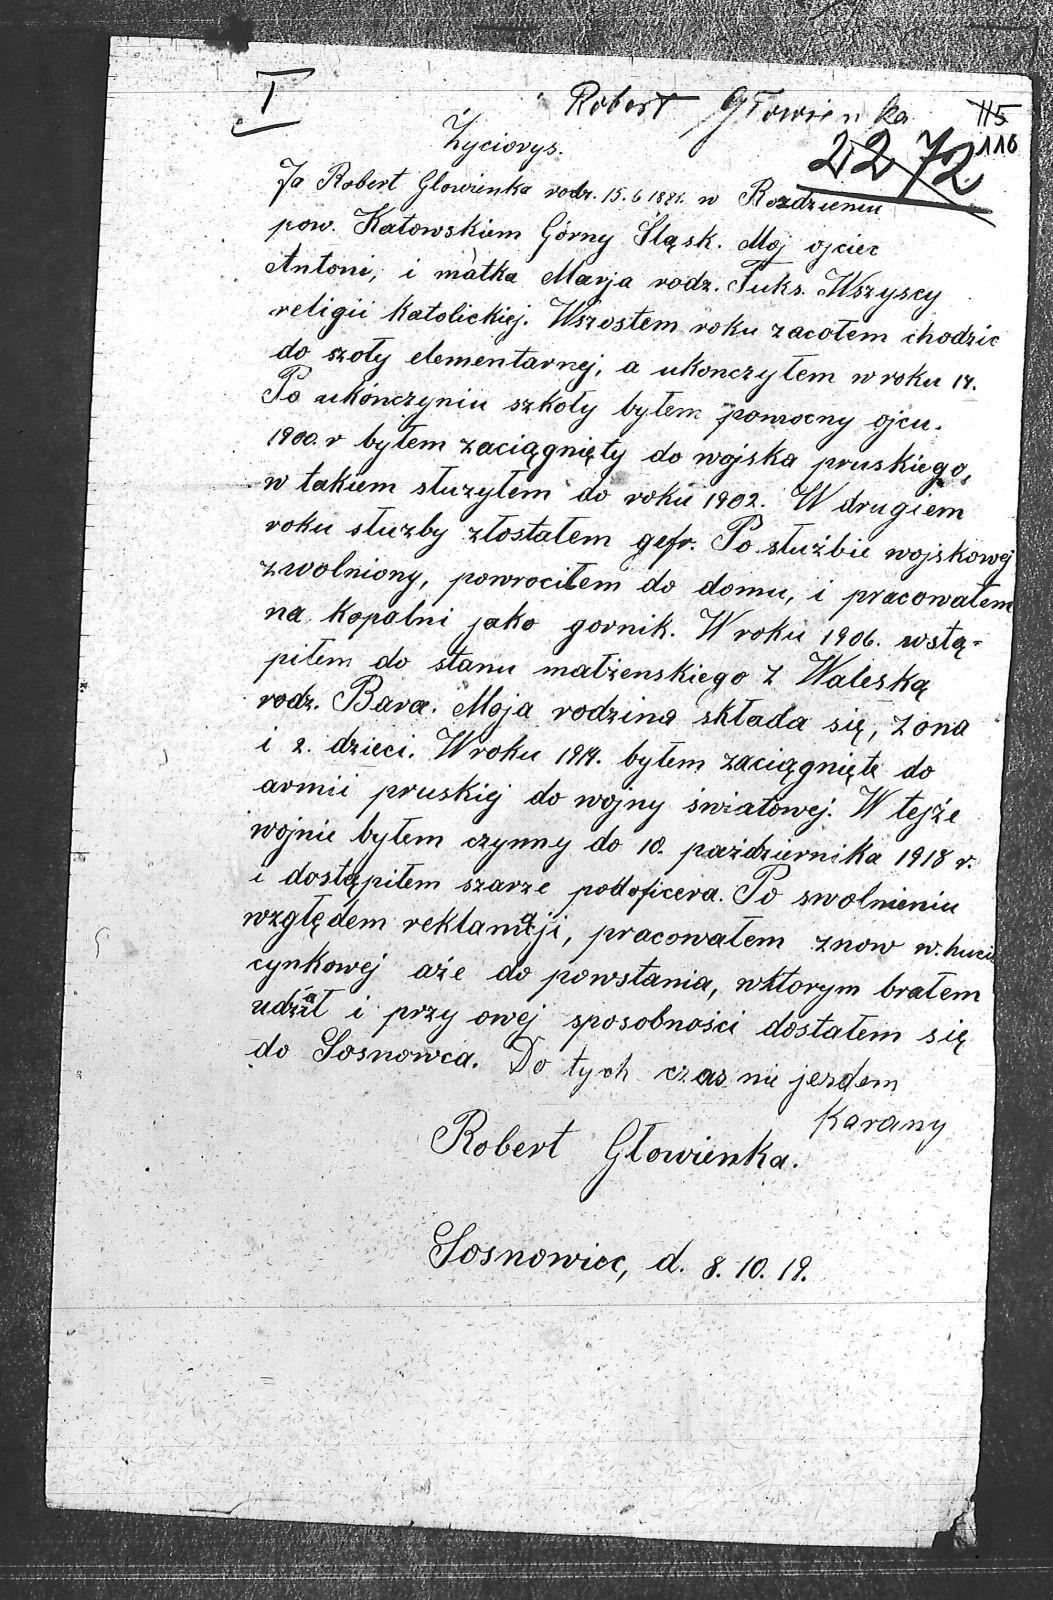 I
Robert Głowienka
115
116
2272
Życiorys.
Ja Robert Glowienka rodz. 15. 6 1881. w Rozdzieniu
pow. Katowskiem Górny Śląsk. Moj ojciec
Antoni, i matka Marja rodz. Fuks. Wszyscy
religii katolickiej. Wszostem roku zacołem chodzic
do szoły elementarnej, a ukonczyłem w roku 14.
Po ukónczyniu szkoły byłem pomocny ojcu.
1900. r byłem zaciągnięty do wojska pruskiego,
w takiem słuzyłem do roku 1902. W drugiem
roku słuzby złostałem gefr. Po służbie wojskowej
zwolniony, powrociłem do domu, i pracowałem
na kopalni jako gornik. W roku 1906. wstą-
piłem do stanu małżenskiego z Waleską
rodz. Bara. Moja rodzina składa się, żona
i 2. dzieci. W roku 1914. byłem zaciągnięte do
armii pruskiej do wojny światowej. W tejże
wojnie byłem czynny do 10. października 1918 r.
i dostąpiłem szarze podoficera. Po swolnieniu
względem reklamacji, pracowałem znow w. hucie
cynkowej aże do powstania, wktorym brałem
udział i przy owej sposobności dostałem się
do Sosnowca. Do tych czas nie jezdem
Karany
Robert Głowienka.
Sosnowiec, d. 8. 10. 19.